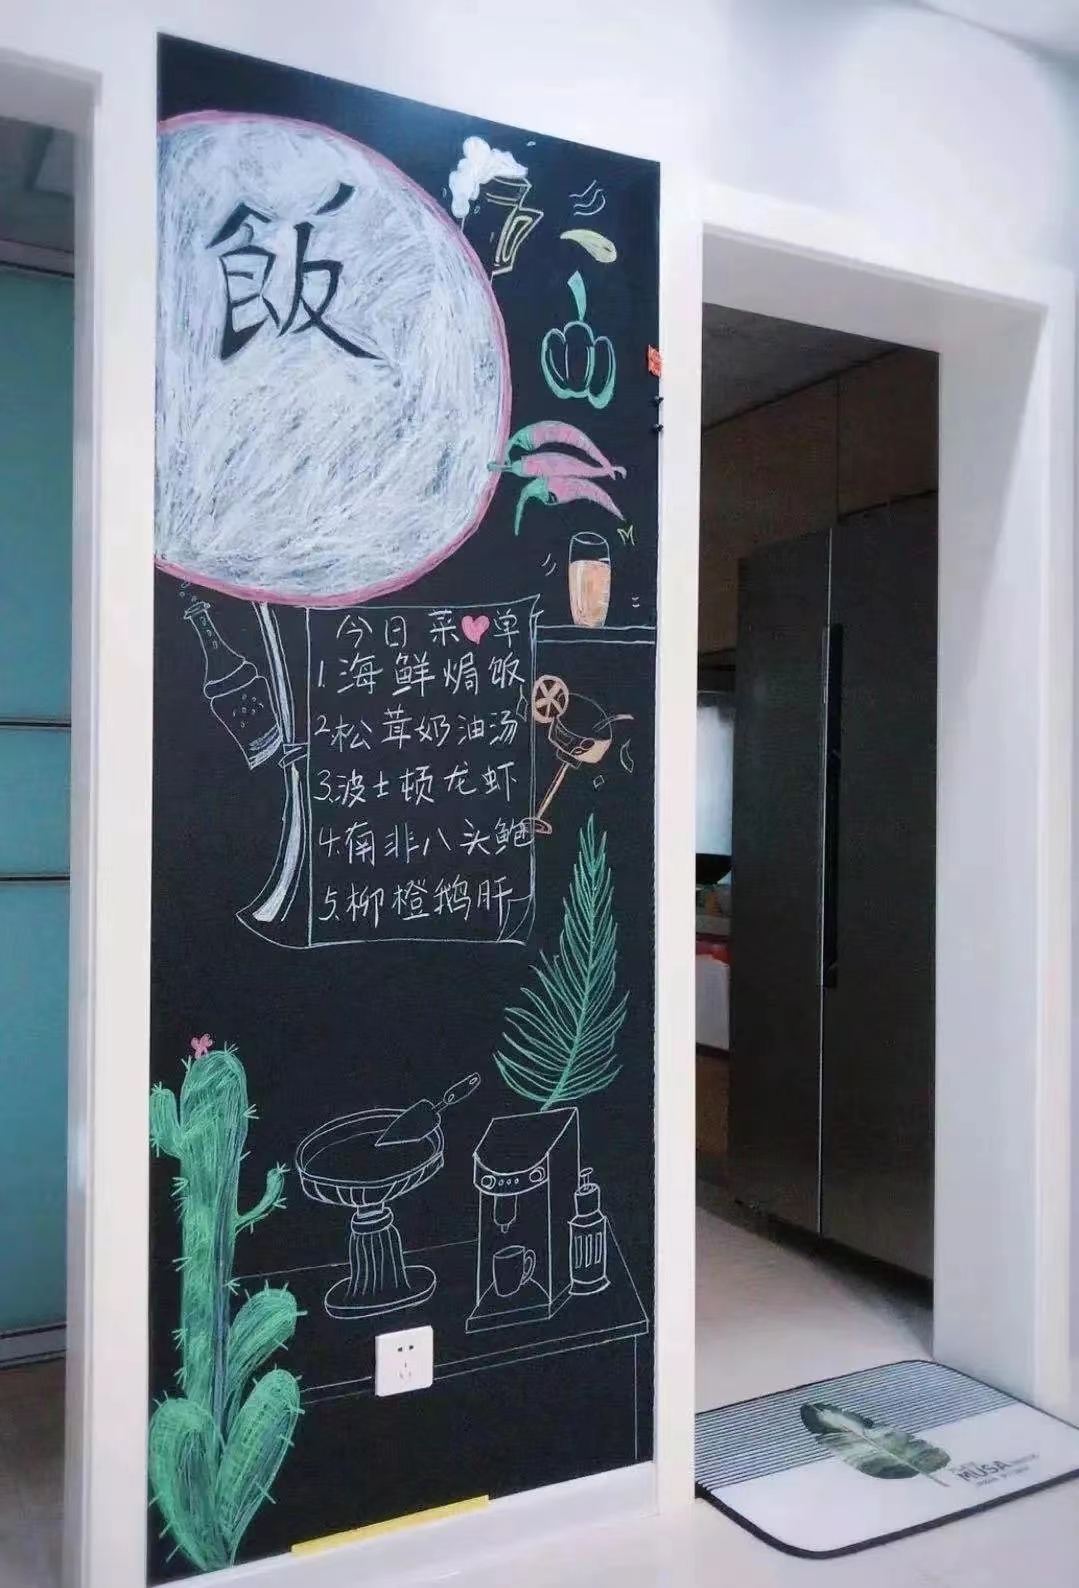 飯
今日菜单
1.海鲜焗饭
2.松茸奶油汤
3.波士顿龙虾
4.南非八头鲍
5.柳橙鹅肝
MUSA